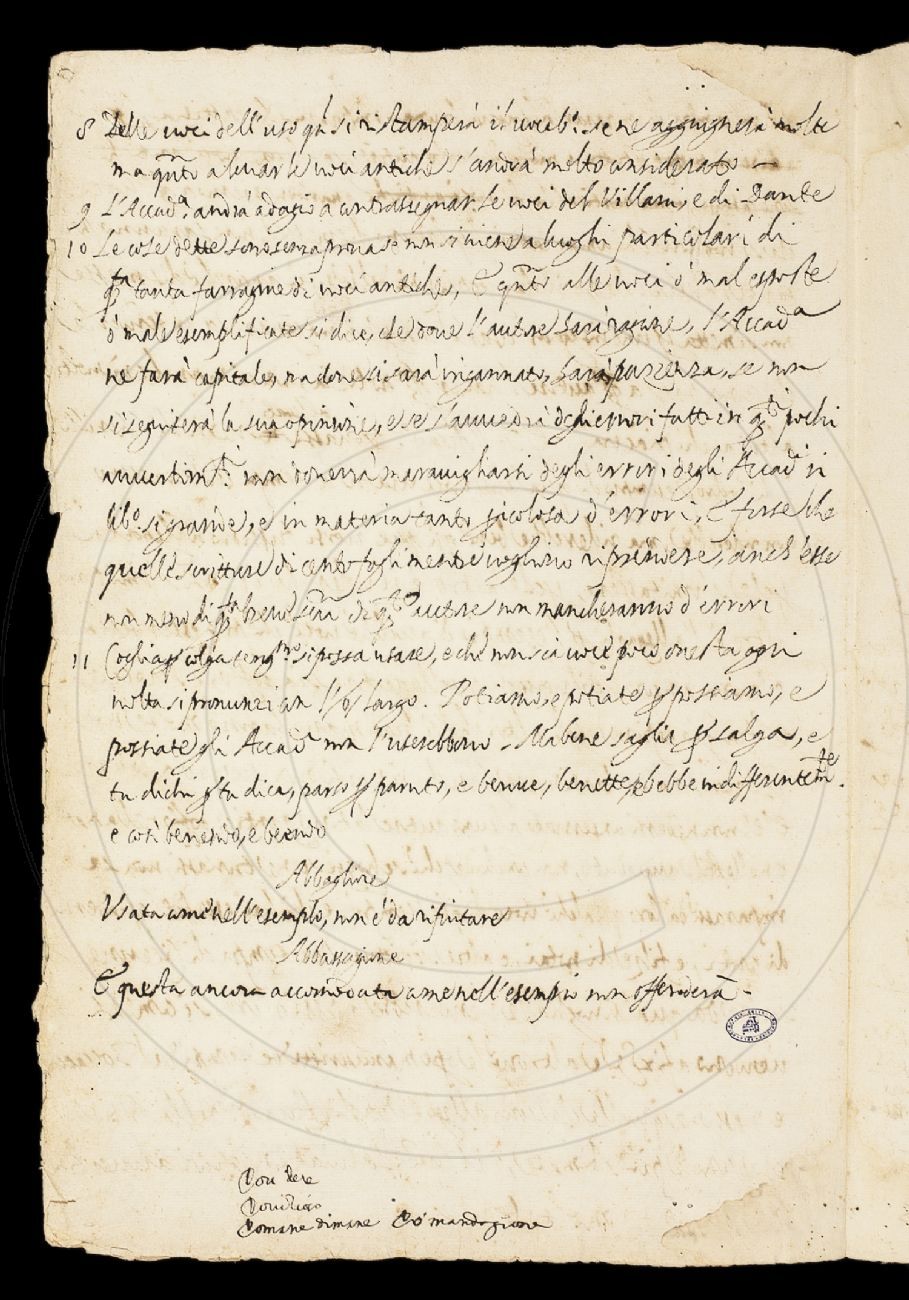 8 Delle voci dell'uso qn. si ristamperà il vocab.o se ne aggiugnerà molte
ma qnto a levar le voci antiche s'andrà molto considerato —
9 L'Accad.a andrà adagio a contrassegnar le voci del Villani, e di Dante
10 Le cose dette sono senza prova se non si viene a luoghi particolari di
qsta tanta farragine di voci antiche, E qnto alle voci ò mal esposte
ò male esemplificate si dice, che dove l'autore havrà ragione, l'Accad.a
ne farà capitale, ma dove si sarà ingannato, harà pazienza, se non
si seguiterà la sua opinione, e se s'avvedrà degli errori fatti in qsti pochi
avvertim.ti non doverrà maravigliarsi degli errori degli Accad.ci in
lib.o sì grande, e in materia tanto picolosa d'errori, E forse che
quelle scritture di cento fogli mentre vogliono riprendere, anch'esse
non meno di qsta breve di qsto autore non mancheranno d'errori
11 Coglia p colga se ng.mo si possa usare, e che non sia voce poco onesta ogni
volta si pronunci con l'/o/ largo. Potiamo, e potiate p possiamo, e
possiate gli Accad.ci non l'userebbono - Ma bene saglia p salga, e
tu dichi p tu dica, parso p paruto, e bevve, bevette, e bebbe indifferentem.te
e così bevendo, e beendo
Abbagliore
Usata come nell'esemplo, non è da rifiutare
Abbassagione
E questa ancora accomodata come nell'esempio non offenderà -
Comane dimane Co mandagione